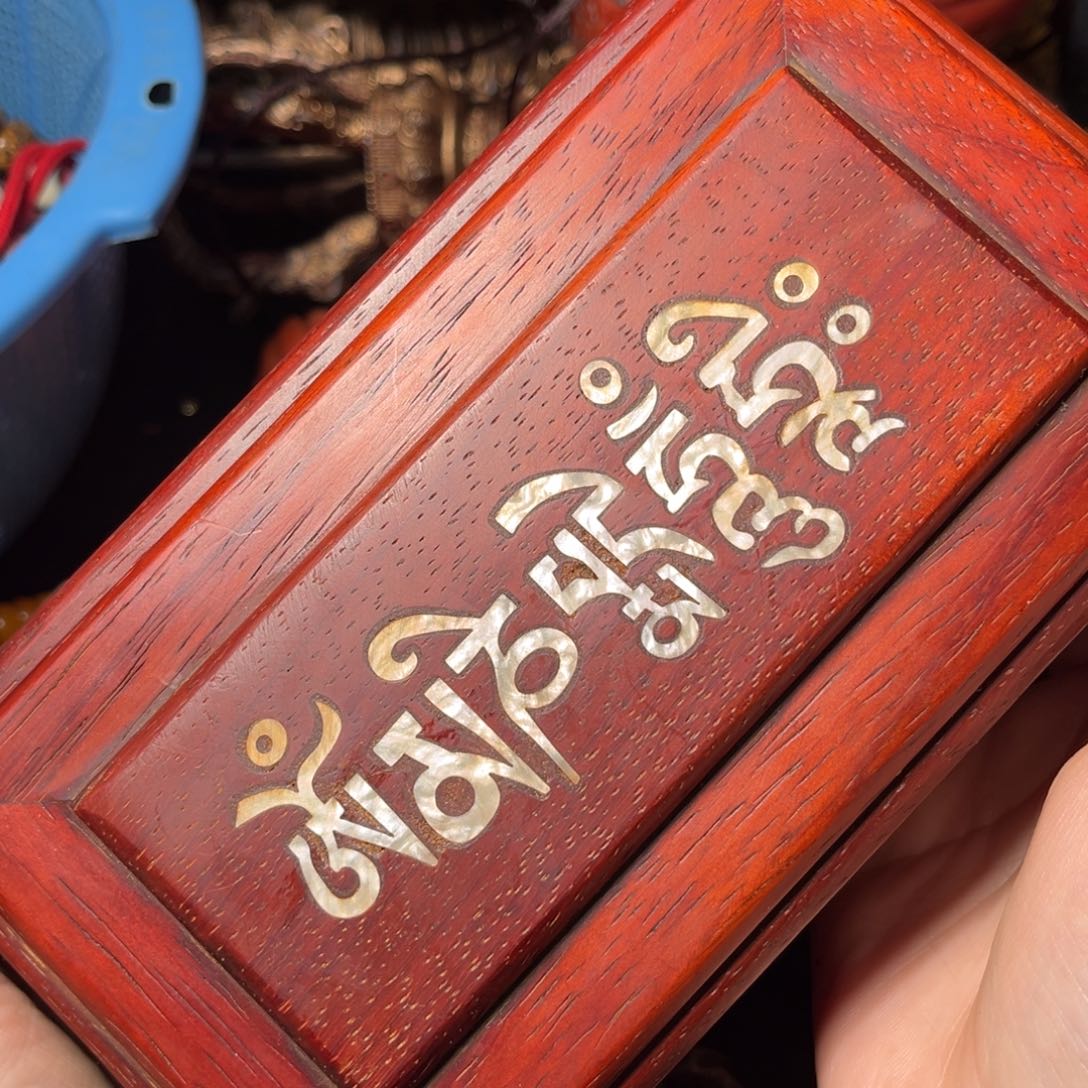 ཨོཾམཎིཔདྨེཧཱུྃཧྲིཿ